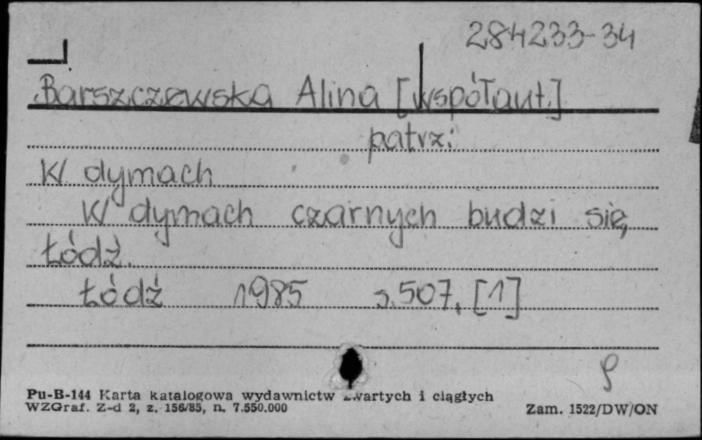 284233-34
Barszczewska Alina [współaut.]
patrz:
W dymach
W dymach czarnych budzi się
Łódź.
Łódź 1985 s. 507, [1]
Pu-B-144 Karta katalogowa wydawnictw zwartych i ciągłych
WZGraf. Z-d 2, z. 156/85, n. 7.550.000
Zam. 1522/DW/ON